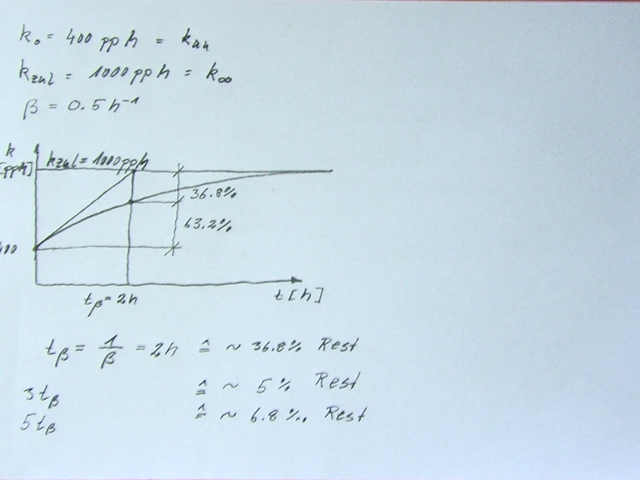 k₀ = 400 ppm = kAu
kzul = 1000 ppm = k∞
β = 0.5 h⁻¹
k
[ppm]
kzul = 1000 ppm
36.8%
63.2%
400
tβ = 2h
t [h]
tβ = 1/β = 2h ≙ ~ 36.8% Rest
3tβ ≙ ~ 5% Rest
5tβ ≙ ~ 6.8‰ Rest